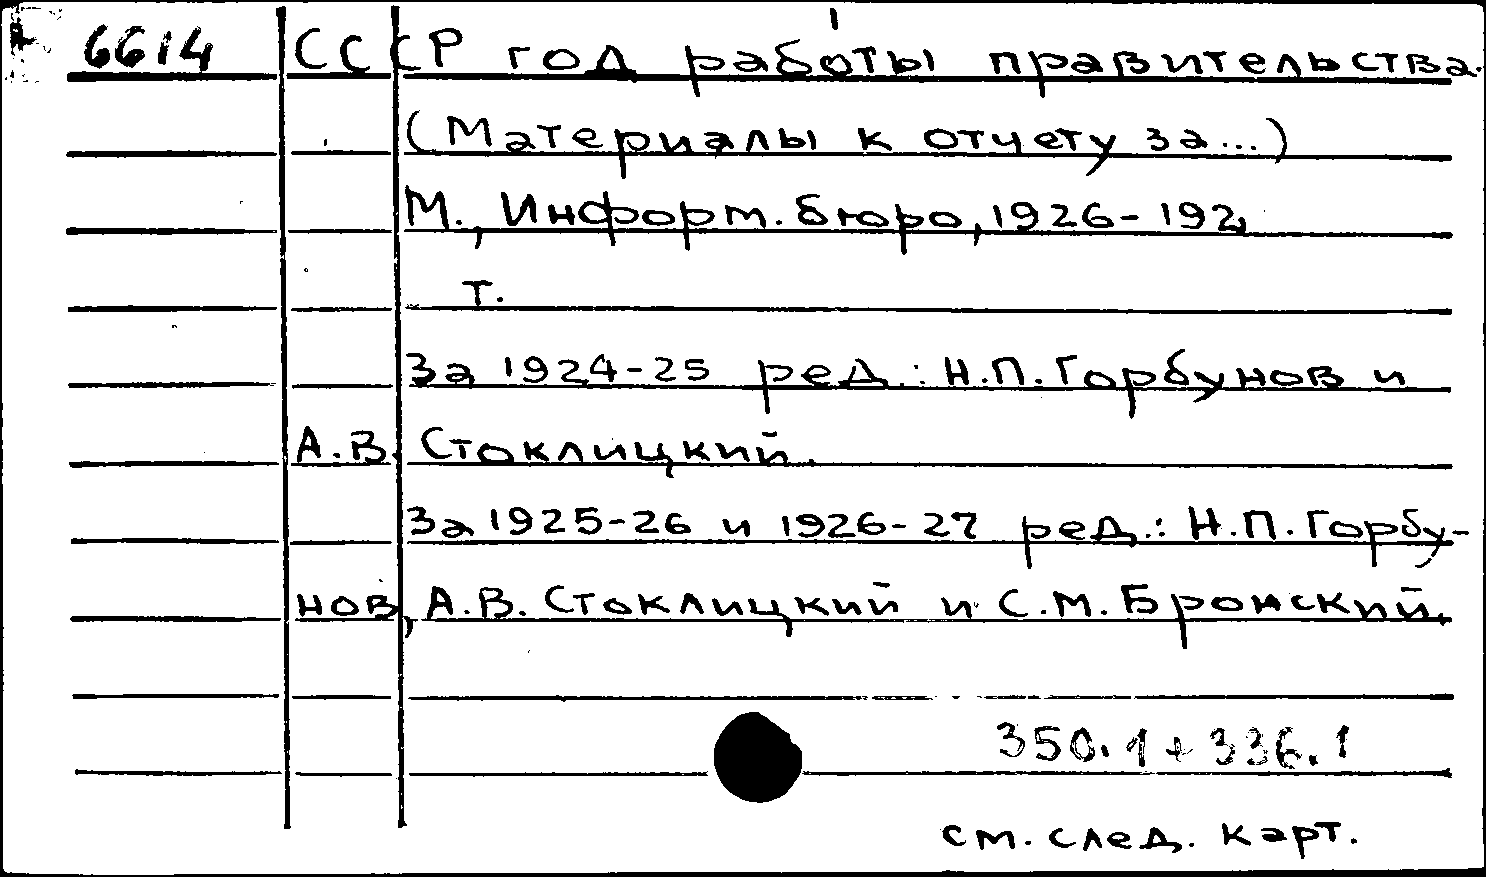 6614 СССР год работы правительства.
(Материалы к отчету за...)
М., Информ. бюро, 1926-192
т.
За 1924-25 ред.: Н.П. Горбунов и
А.В. Стоклицкий.
За 1925-26 и 1926-27 ред.: Н.П. Горбу-
нов, А.В. Стоклицкий и С.М. Бронский.
350.1+336.1
см. след. карт.